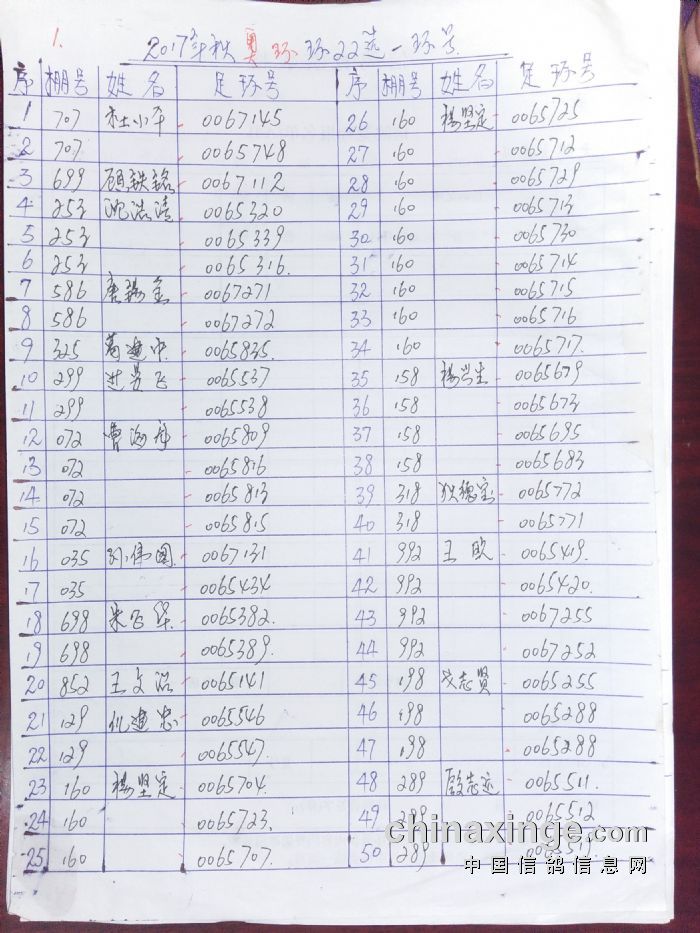 1.
2017年秋奥环环22选一环号
序 棚号 姓名 足环号 序 棚号 姓名 足环号
1 707 杜小平 0067145 26 160 杨坚定 0065725
2 707 0065748 27 160 0065712
3 699 顾铁铭 0067112 28 160 0065729
4 253 沈浩清 0065320 29 160 0065713
5 253 0065339 30 160 0065730
6 253 0065316. 31 160 0065714
7 586 唐锡金 0067271 32 160 0065715
8 586 0067272 33 160 0065716
9 325 葛建中 0065835. 34 160 0065717.
10 299 进昊飞 0065537 35 158 杨兴生 0065679
11 299 0065538 36 158 0065673
12 072 曹海舟 0065809 37 158 0065695
13 072 0065816 38 158 0065683
14 072 0065813 39 318 狄德宝 0065772
15 072 0065815 40 318 0065771
16 035 孙伟国 0067131 41 992 王欧 0065419.
17 035 0065434 42 992 0065420.
18 698 朱飞华 0065382. 43 992 0067255
19 698 0065389. 44 992 0067252
20 852 王文浩 0065141 45 198 戈志贤 0065255
21 129 仇建忠 0065546 46 198 0065288
22 129 0065547. 47 198 0065288
23 160 杨坚定 0065704. 48 289 殷志远 0065511.
24 160 0065723. 49 289 0065512
25 160 0065707. 50 289
chinaxinge.com
中国信鸽信息网